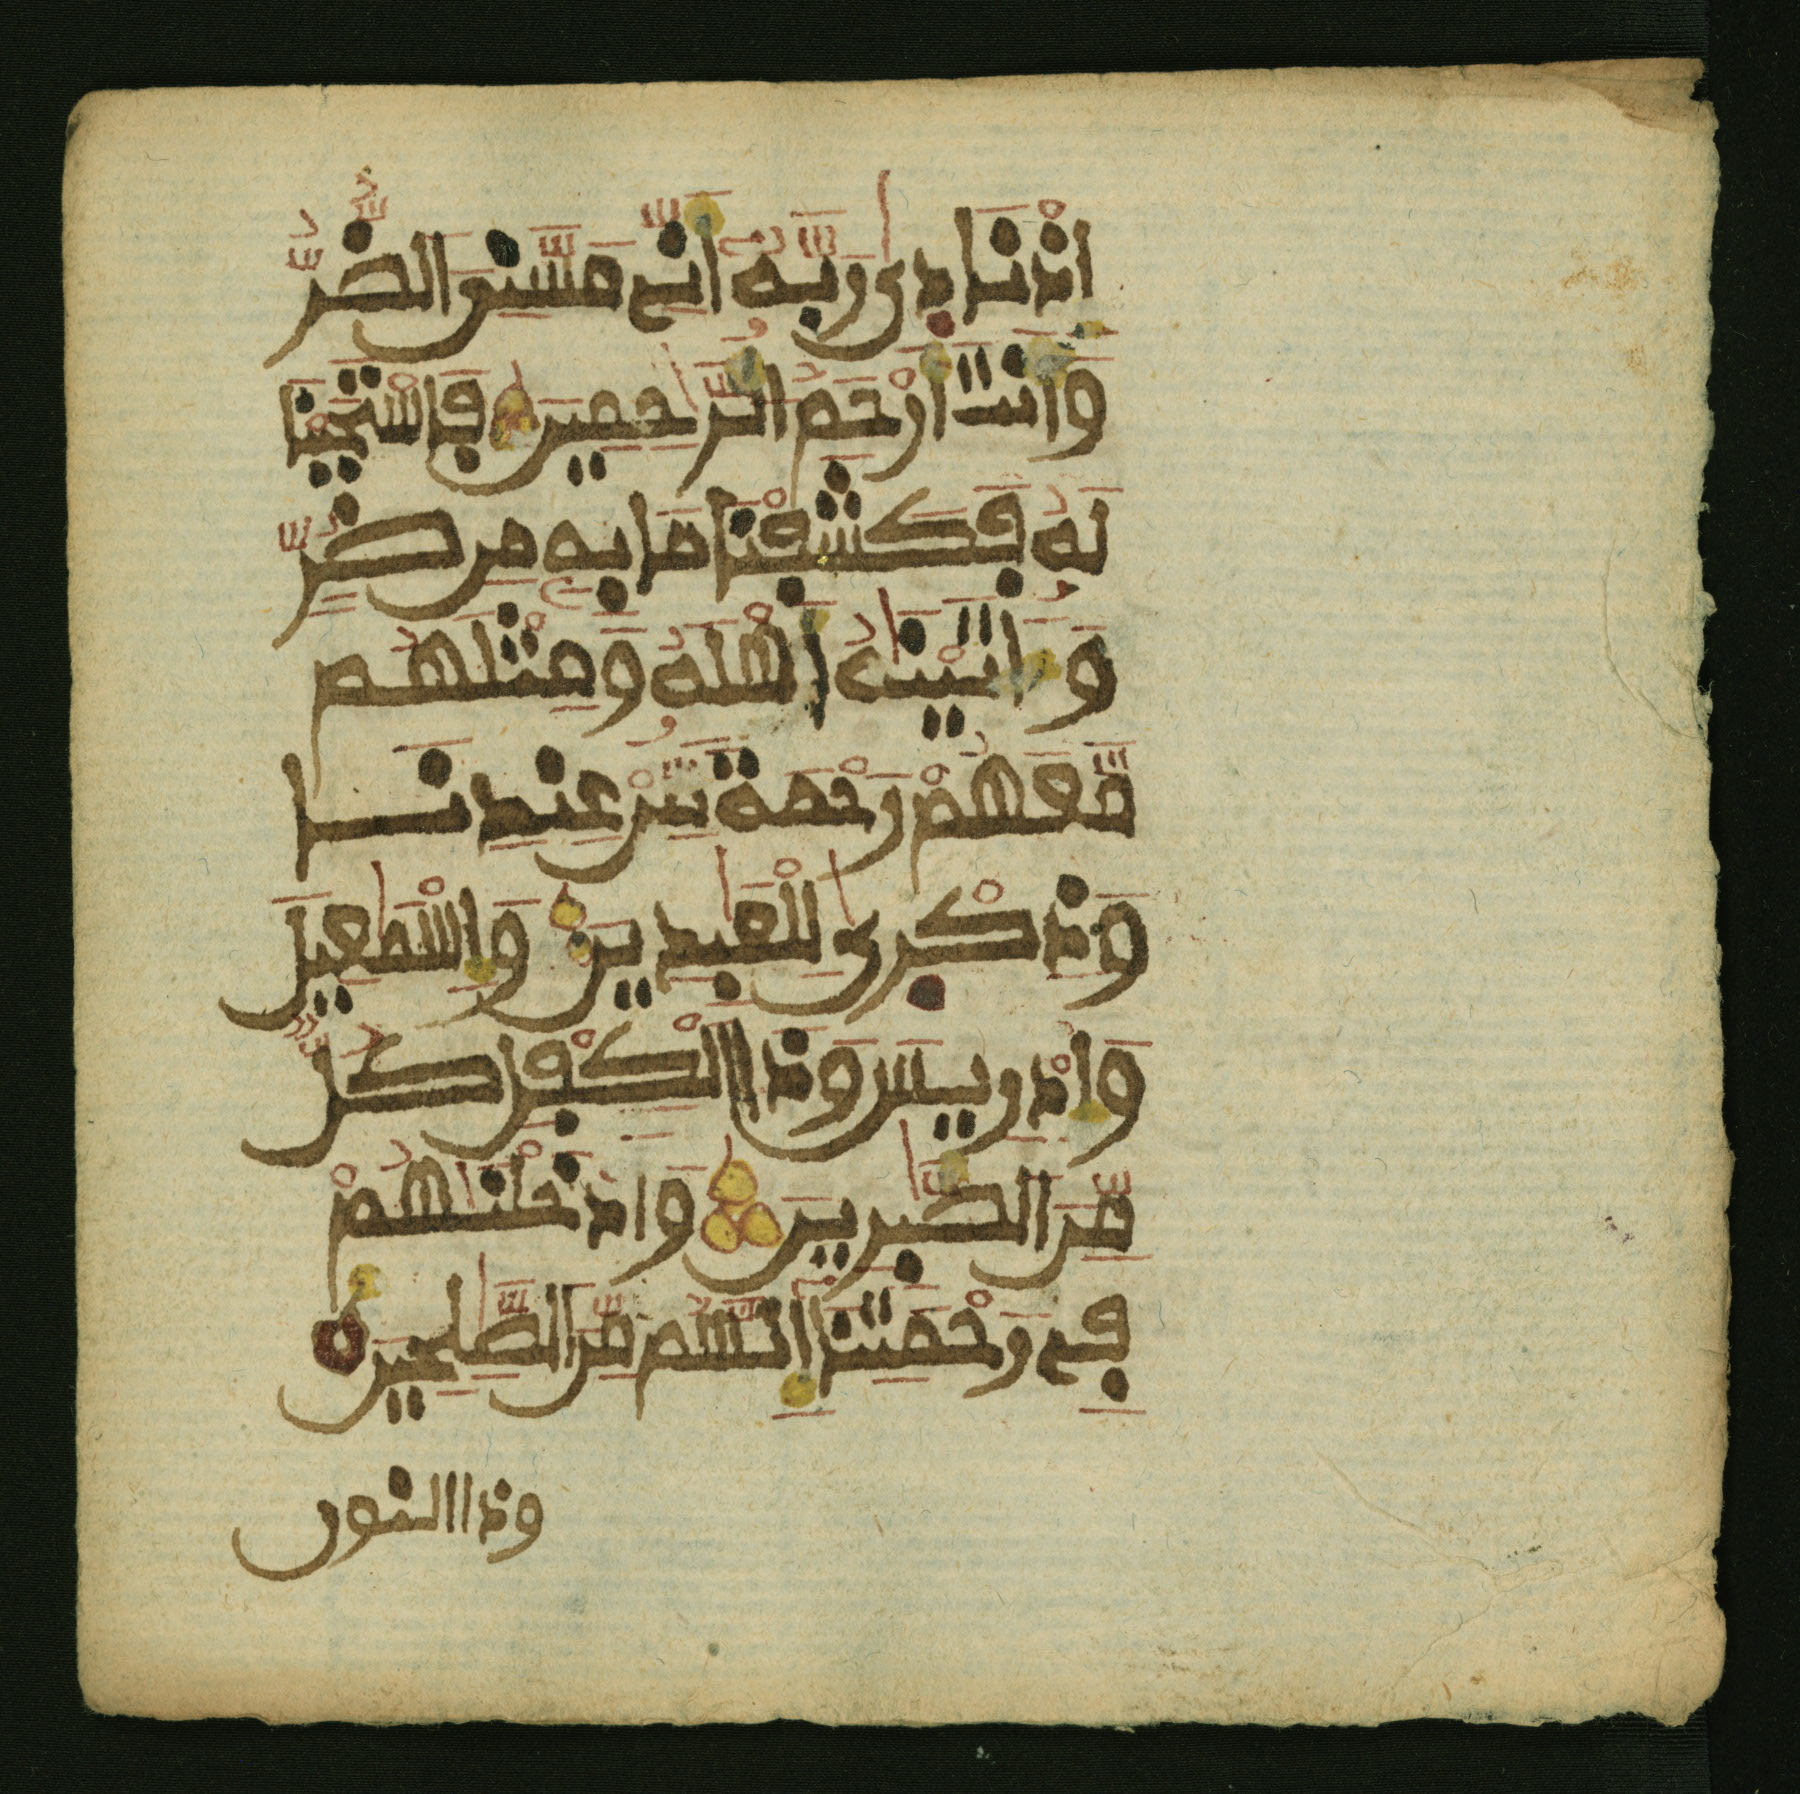 اِذْ نَادٜى رَبَّهُۥٓ أَنِّے مَسَّنِىَ اَلضُّرُّ
وَأَنتَ أَرْحَمُ اُلرَّٰحِمِينَ فَاسْتَجَبْنَا
لَهُۥ فَكَشَفْنَا مَا بِهِۦ مِن ضُرٍّ
وَءَاتَيْنَٰهُ أَهْلَهُۥ وَمِثْلَهُم
مَّعَهُمْ رَحْمَةً مِّنْ عِندِنَا
وَذِكْرٜىٰ لِلْعَٰبِدِينَ وَإِسْمَٰعِيلَ
وَإِدْرِيسَ وَذَا اَلْكِفْلِ كُلٌّ
مِّنَ اَلصَّٰبِرِينَ وَأَدْخَلْنَٰهُمْ
فِے رَحْمَتِنَآ إِنَّهُم مِّنَ اَلصَّٰلِحِينَ
وذا النون